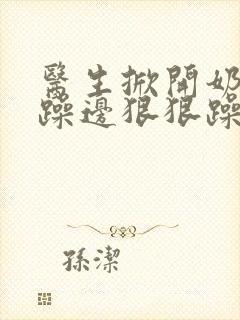 醫生掀開奶
躁邊狠狠躁
孫潔